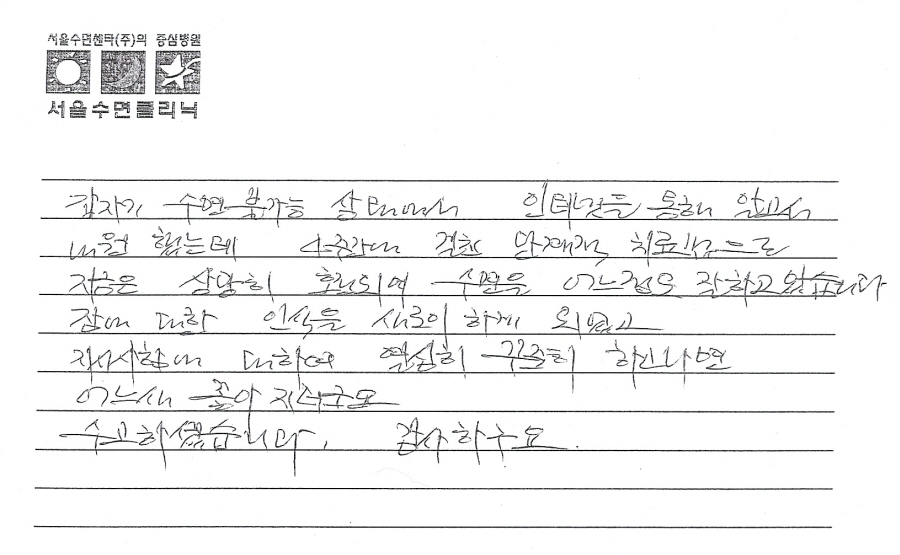 서울수면센터(주)의 중심병원
서울수면클리닉
갑자기 수면 불가능 상태에서 인터넷을 통해 알고서
내원 했는데 4주간에 걸친 단계적 치료법으로
지금은 상당히 호전되어 수면을 어느정도 잘하고 있습니다
잠에 대한 인식을 새로이 하게 되었고
지시사항에 대하여 열심히 꾸준히 하다나면
어느새 좋아지더구요
수고하셨습니다. 감사하구요.